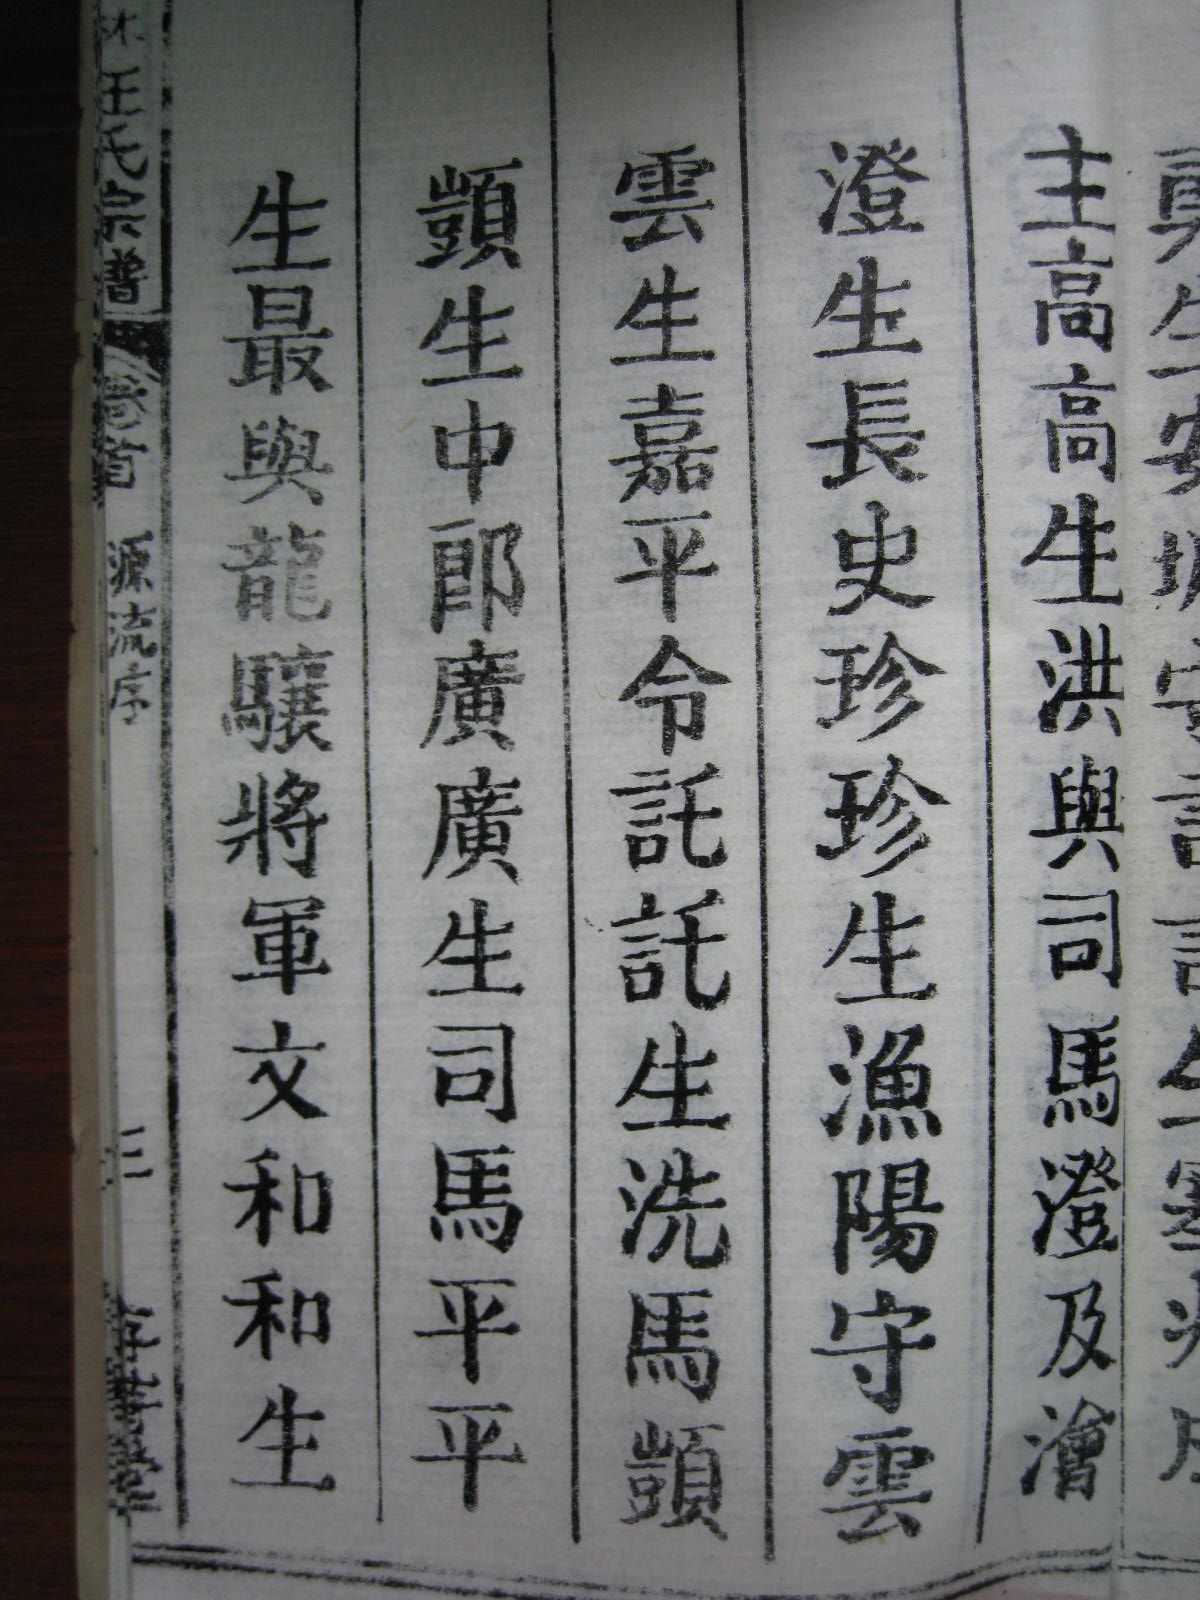 主高高生洪與司馬澄及澮
澄生長史珍珍生漁陽守雲
雲生嘉平令託託生洗馬顗
顗生中郎廣廣生司馬平平
生最與龍驤將軍文和和生
王氏宗譜 卷首 源流序 三